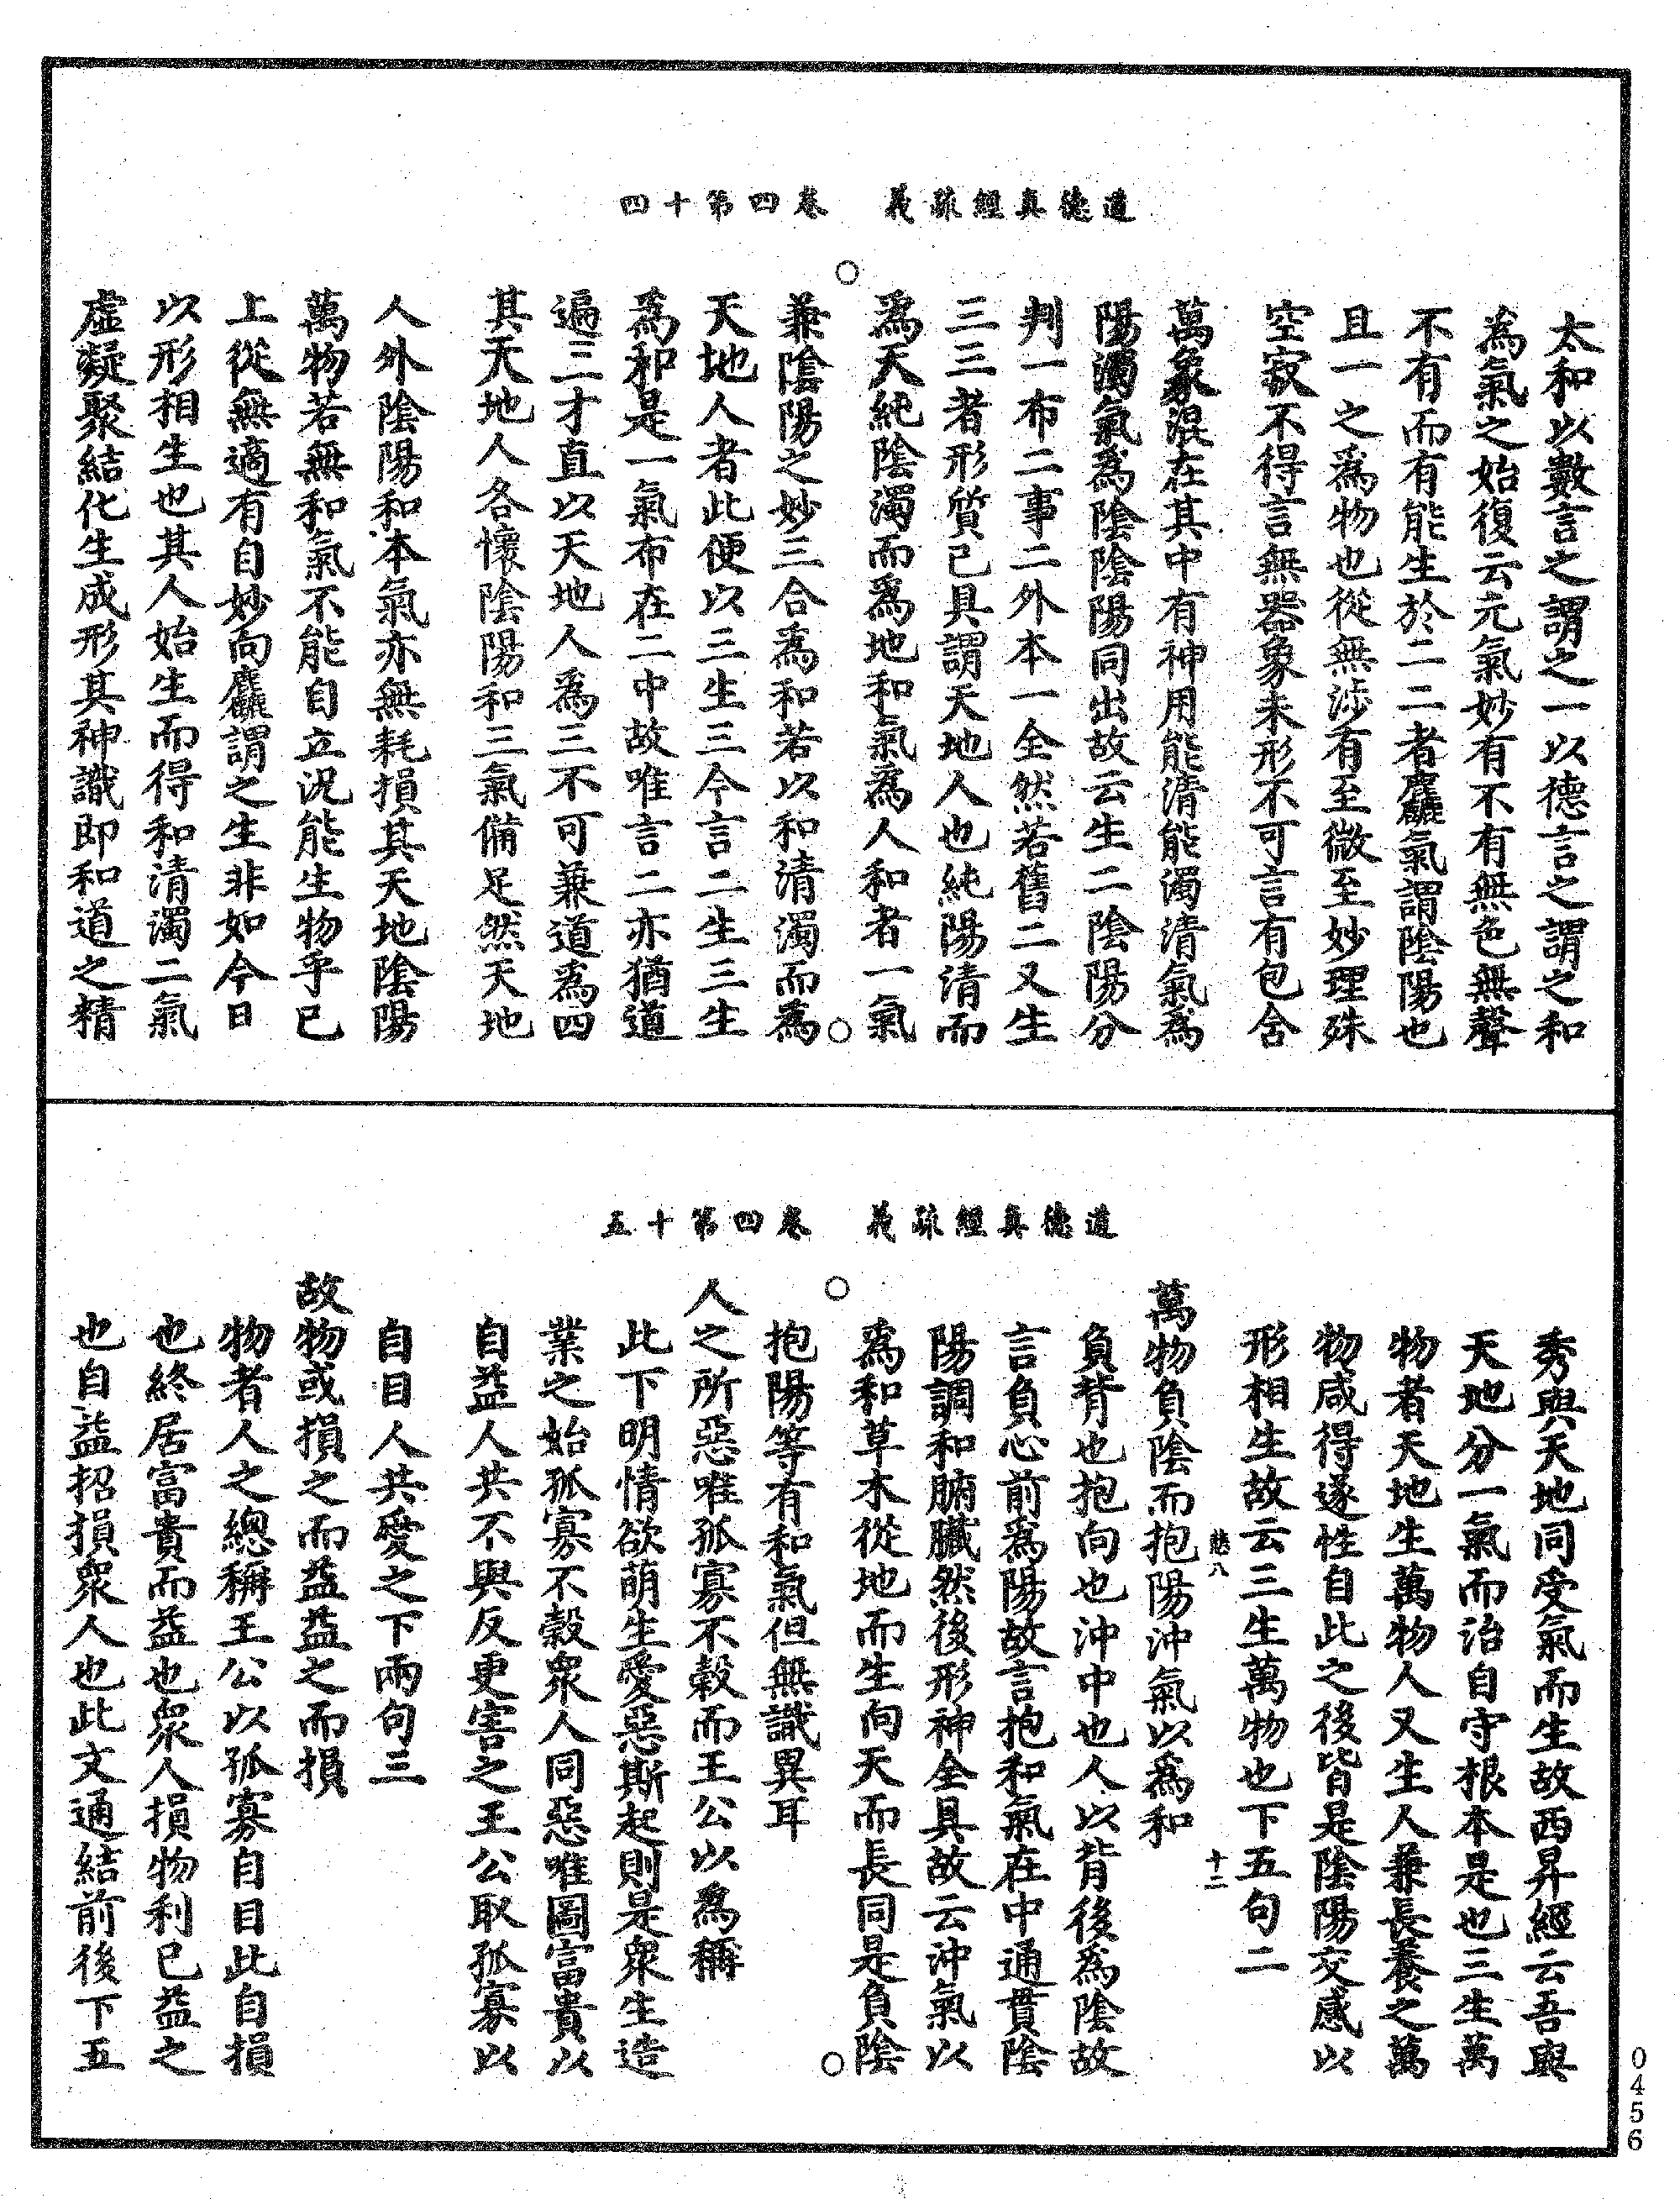 道德真經疏義　卷四第十四
太和以數言之謂之一以德言之謂之和
為氣之始復云元氣妙有不有無色無聲
不有而有能生於二二者麤氣謂陰陽也
且一之爲物也從無涉有至微至妙理殊
空寂不得言無器象未形不可言有包含
萬象混在其中有神用能清能濁清氣爲
陽濁氣爲陰陰陽同出故云生二陰陽分
判一布二事二外本一全然若舊二又生
三三者形質已具謂天地人也純陽清而
爲天純陰濁而爲地和氣爲人和者一氣
兼陰陽之妙三合爲和若以和清濁而爲
天地人者此便以三生三今言二生三生
爲和是一氣布在二中故唯言二亦猶道
遍三才直以天地人為三不可兼道爲四
其天地人各懷陰陽和三氣備足然天地
人外陰陽和本氣亦無耗損其天地陰陽
萬物若無和氣不能自立況能生物乎已
上從無適有自妙向麤謂之生非如今日
以形相生也其人始生而得和清濁二氣
虛凝聚結化生成形其神識即和道之精
道德真經疏義　卷四第十五
秀與天地同受氣而生故西昇經云吾與
天地分一氣而治自守根本是也三生萬
物者天地生萬物人又生人兼長養之萬
物咸得遂性自此之後皆是陰陽交感以
形相生故云三生萬物也下五句二
十二
萬物負陰而抱陽沖氣以爲和
負背也抱向也沖中也人以背後爲陰故
言負心前爲陽故言抱和氣在中通貫陰
陽調和腑臟然後形神全具故云沖氣以
爲和草木從地而生向天而長同是負陰
抱陽等有和氣但無識異耳
人之所惡唯孤寡不穀而王公以爲稱
此下明情欲萌生愛惡斯起則是衆生造
業之始孤寡不穀衆人同惡唯圖富貴以
自益人共不與反更害之王公取孤寡以
自目人共愛之下兩句三
故物或損之而益益之而損
物者人之總稱王公以孤寡自目此自損
也終居富貴而益也衆人損物利已益之
也自益招損衆人也此文通結前後下五
0456